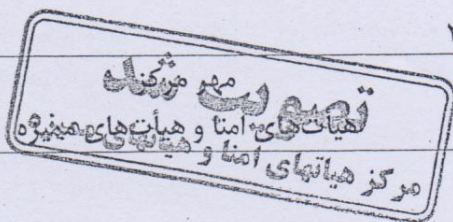 مهر مرکز
تصویب شده
هیأت‌های امنا و هیأت‌های ممیزه
مرکز هیاتهای امنا و هیاتهای ممیزه